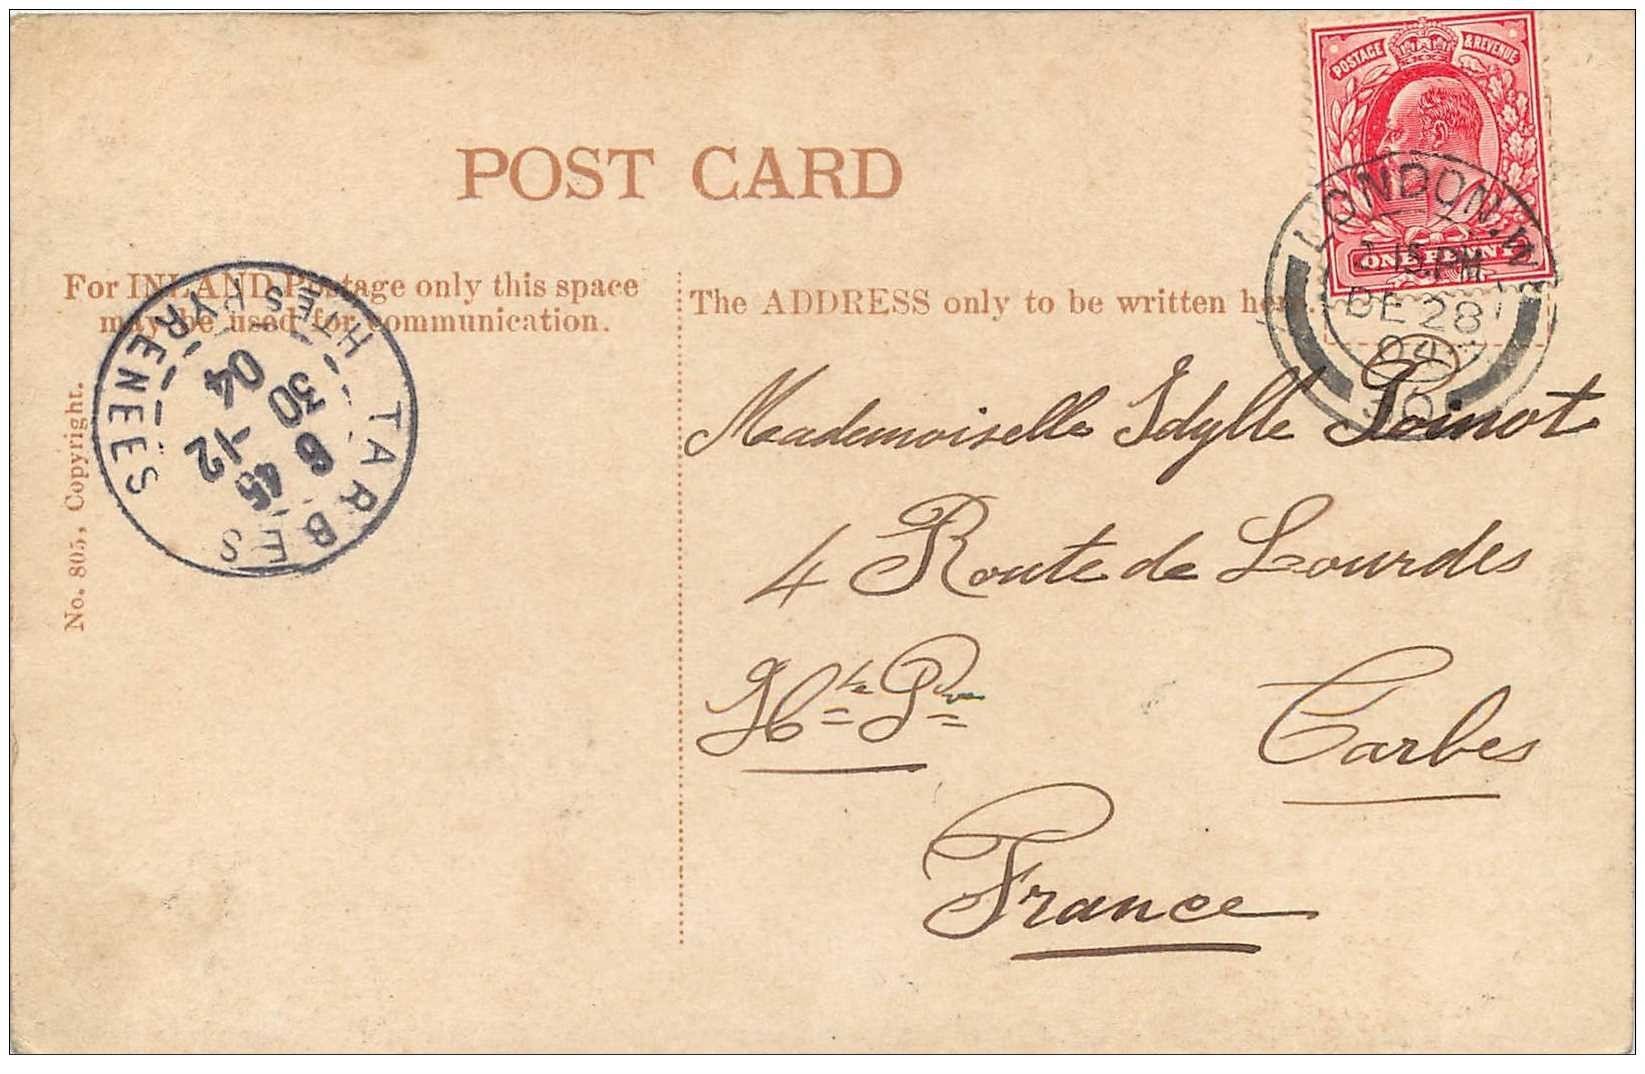 POST CARD
POSTAGE & REVENUE
ONE PENNY
LONDON.W
15.PM
DE 28
04
30
For INLAND Postage only this space
may be used for communication.
The ADDRESS only to be written here.
TARBES
HTES PYRENEES
6 45
30 -12
04
No. 805, Copyright.
Mademoiselle Idylle Poinot
4 Route de Lourdes
Htes Pyr
Tarbes
France